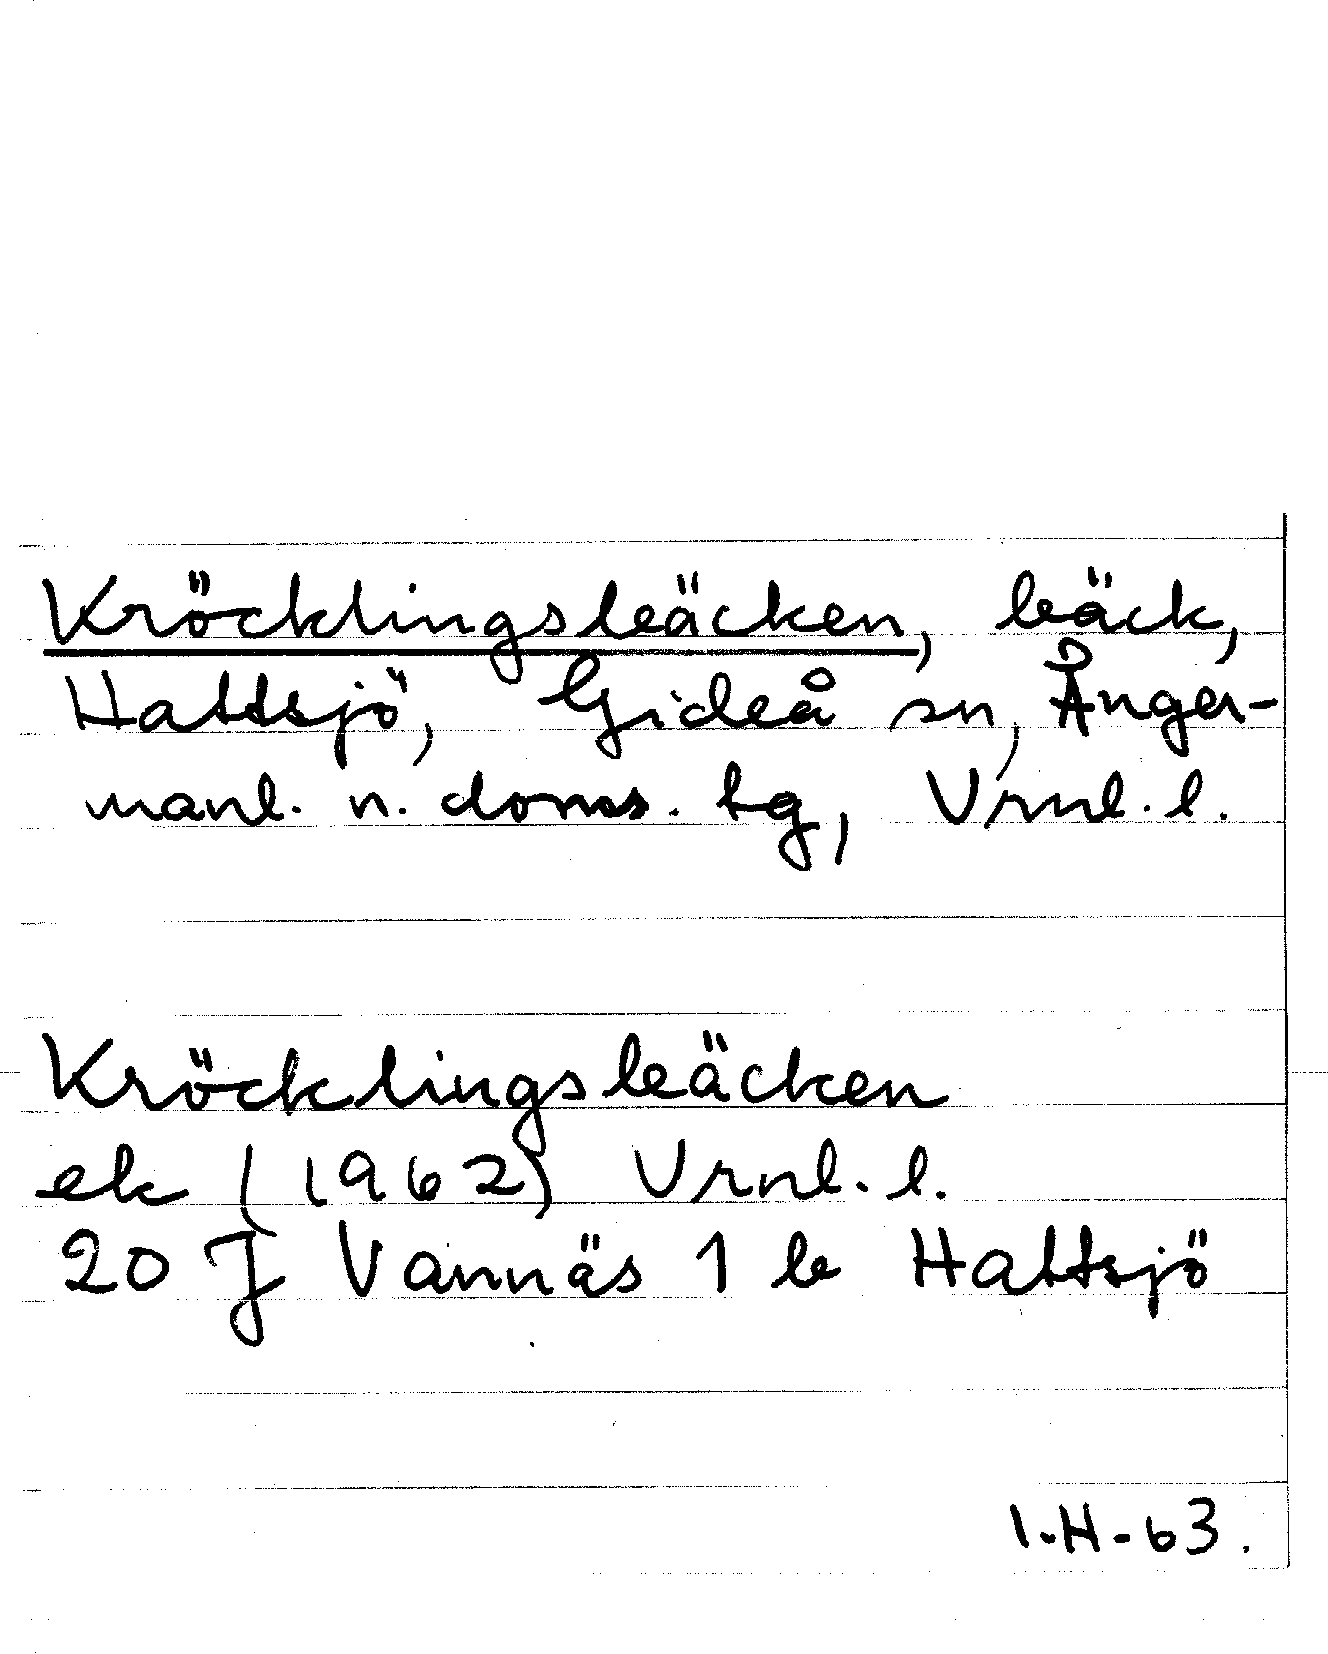 Kröcklingsbäcken, bäck,
Hattsjö, Gideå sn, Ånger-
manl. n. doms. tg, Vrnl. l.
Kröcklingsbäcken
ek (1962) Vrnl. l.
20 J Vännäs 1 b Hattsjö
I.H-63.